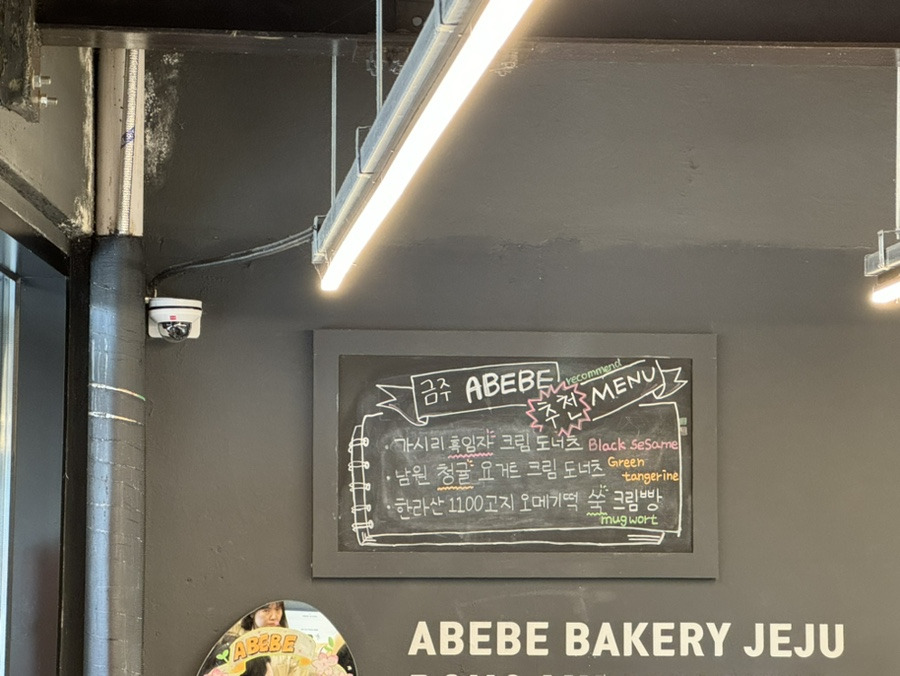 금주 ABEBE recommend
추천 MENU
· 가시리 흑임자 크림 도너츠 Black Sesame
· 남원 청귤 요거트 크림 도너츠 Green tangerine
· 한라산 1100고지 오메기떡 쑥 크림빵
mugwort
ABEBE
ABEBE BAKERY JEJU